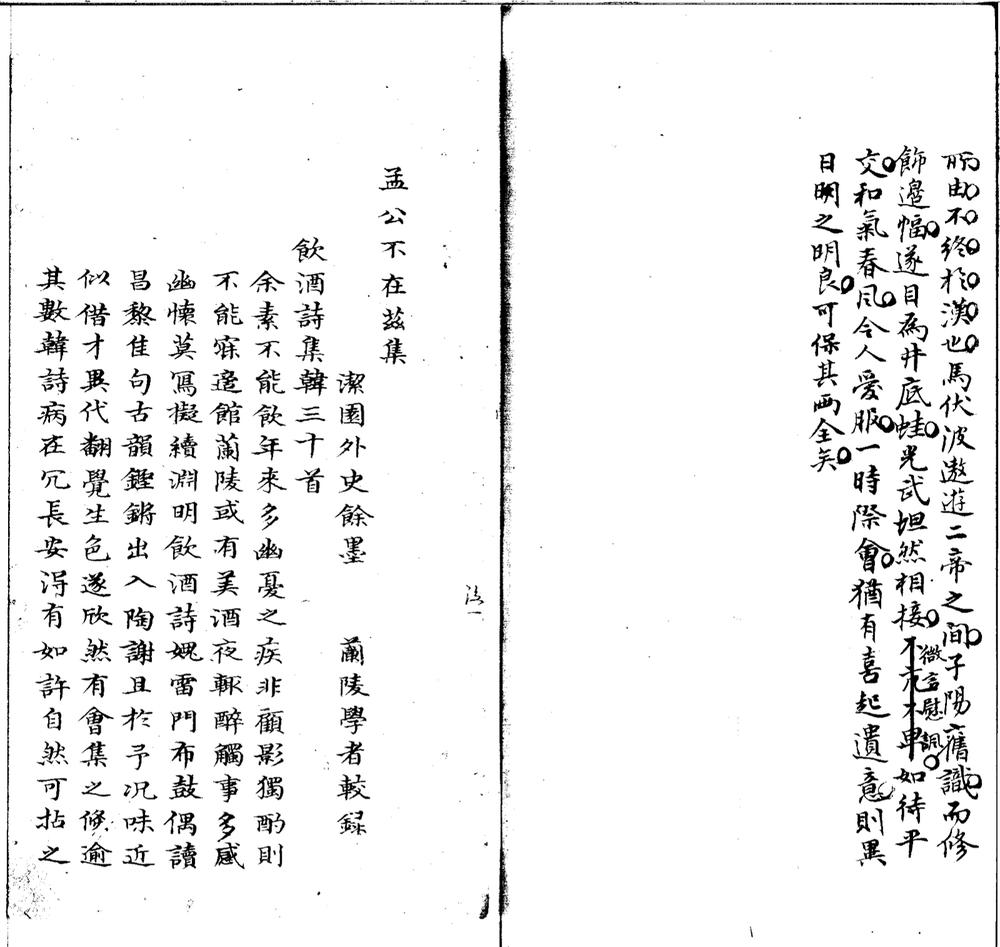 所由不終於漢也馬伏波遨遊二帝之間子陽舊識而修
飾邊幅遂目為井底蛙光武坦然相接不亢不卑如待平
微言慰調
交和氣春風令人愛服一時際會猶有喜起遺意則異
日明之明良可保其兩全矣
法一
孟公不在茲集
潔園外史餘墨　蘭陵學者較録
飲酒詩集韓三十首
余素不能飲年來多幽憂之疾非顧影獨酌則
不能寐適館蘭陵或有美酒夜輒醉觸事多感
幽懷莫寫擬續淵明飲酒詩媿雷門布鼓偶讀
昌黎佳句古韻鏗鏘出入陶謝且於予況味近
似借才異代翻覺生色遂欣然有會集之倏逾
其數韓詩病在冗長安得有如許自然可拈之